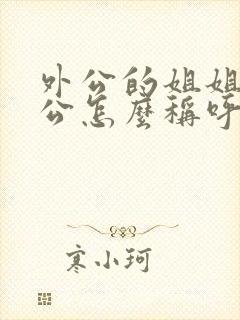 外公的姐姐
公怎麼稱呼
寒小珂